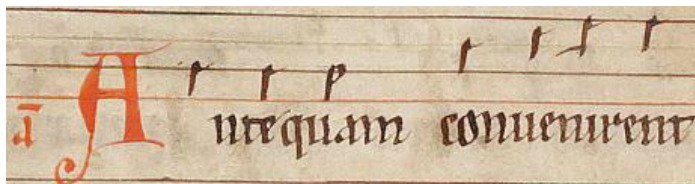 ā Antequam conuenirent